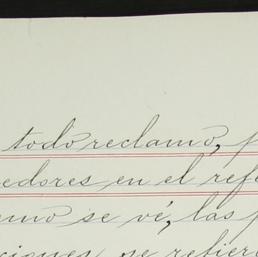 todo reclamo, p
edores en el refe
omo se vé, las p
ciones se refier